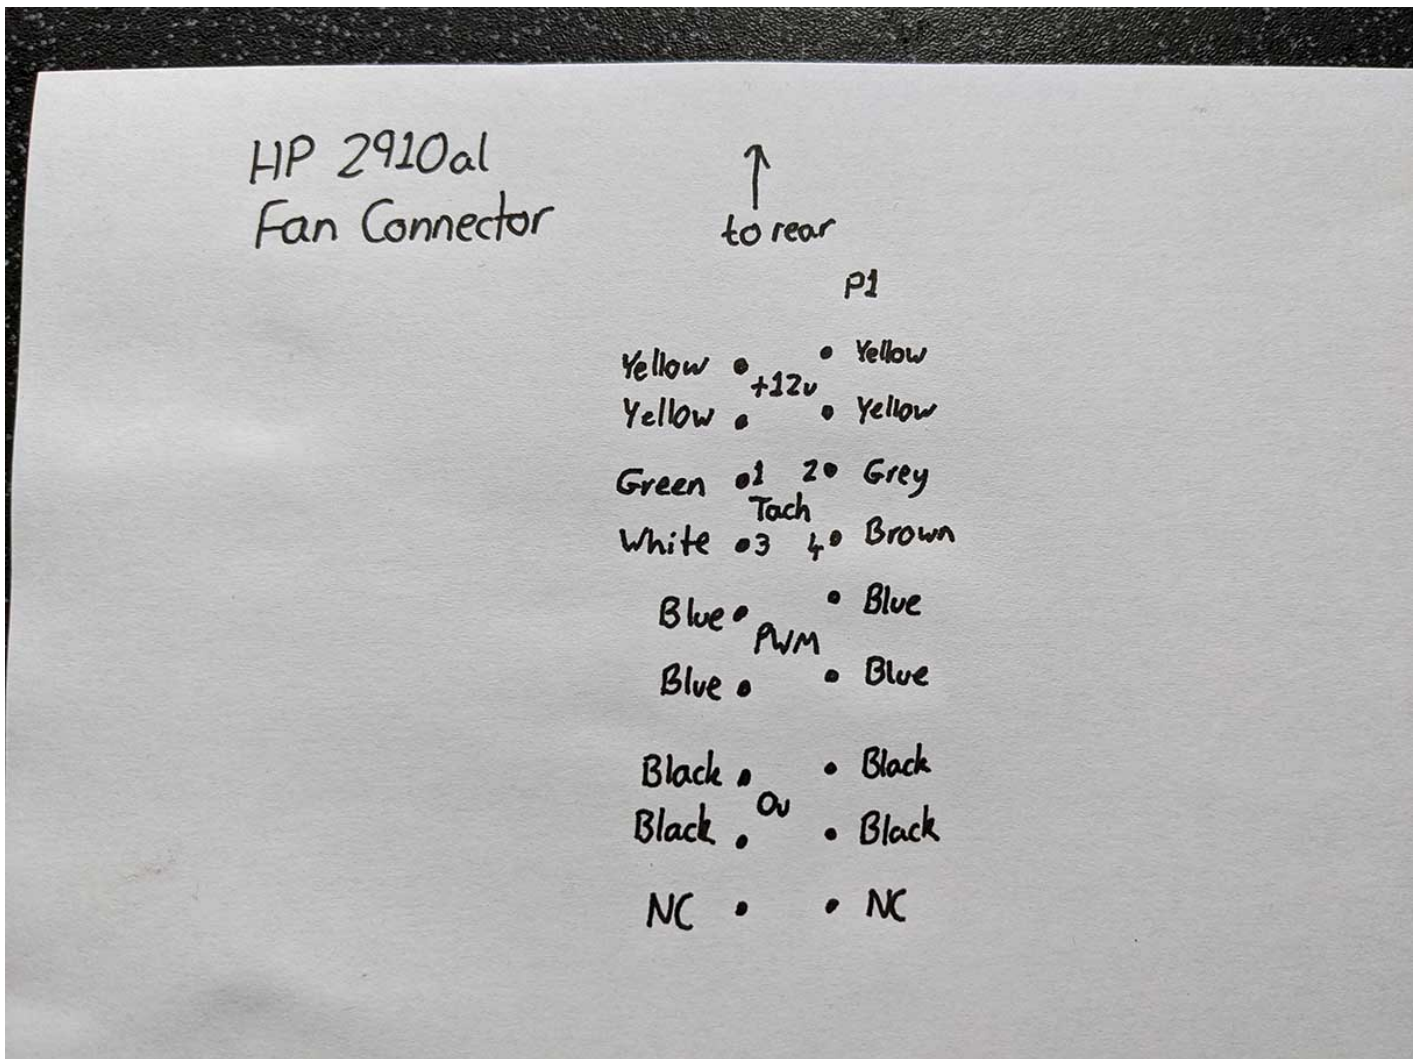 HP 2910al
Fan Connector
to rear
P1
Yellow Yellow
+12v
Yellow Yellow
Green 1 2 Grey
Tach
White 3 4 Brown
Blue Blue
PWM
Blue Blue
Black Black
0v
Black Black
NC NC